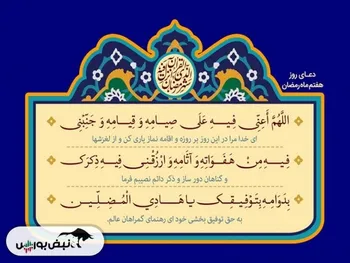 شهر رمضان الذی انزل فیه القرآن
دعـای روز
هفتم ماه رمضان
اللّهُمَّ أَعِنّی فِـیـهِ عَلَی صِیامِهِ وَ قِیامِهِ وَ جَنِّبْنی
ای خدا مرا در این روز بر روزه و اقامه نماز یاری کن و از لغزشها
فِـیـهِ مِنْ هَفَواتِهِ وَ آثامِهِ وَ ارْزُقْنی فِیهِ ذِکْرَکَ
و گناهان دور ساز و ذکر دائم نصیبم فرما
بِدَوامِهِ بِتَوْفِیقِکَ یا هادِیَ الْمُضِلّینَ
به حق توفیق بخشی خود ای رهنمای گمراهان عالم.
نبض بورس